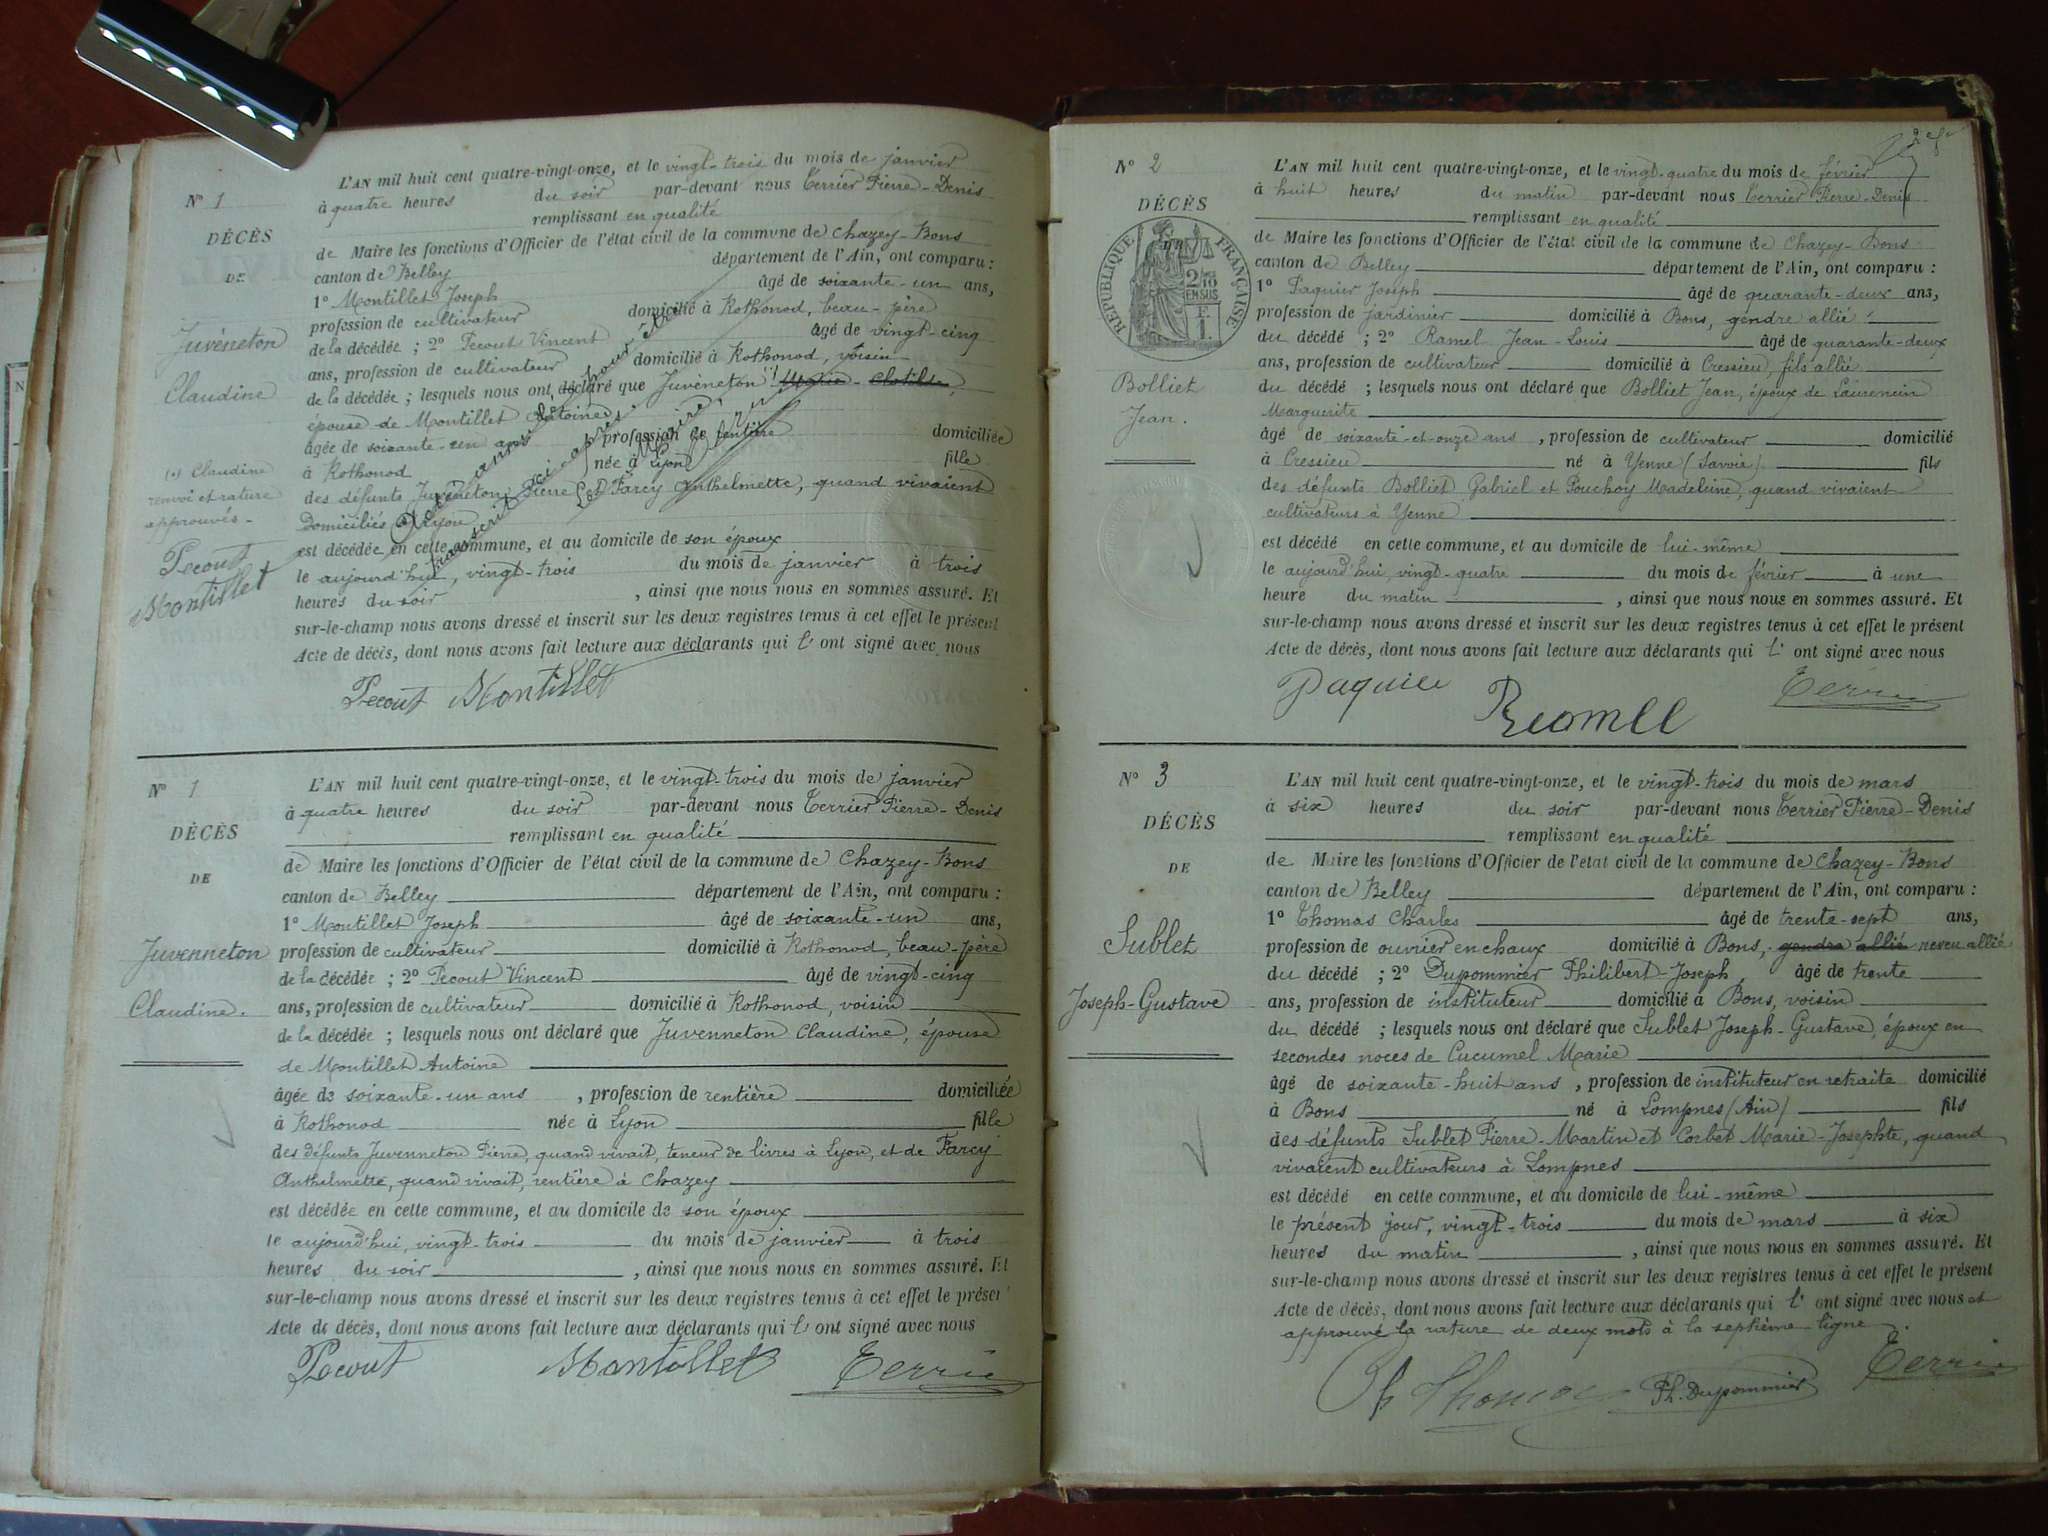 N° 1
DÉCÈS
DE
Juvéneton
Claudine
(1) Claudine
renvoi et rature
approuvés.
Pecout
Montillet
L'AN mil huit cent quatre-vingt-onze, et le vingt-trois du mois de janvier
à quatre heures du soir par-devant nous Terrier Pierre-Denis
remplissant en qualité
de Maire les fonctions d'Officier de l'état civil de la commune de Chazey-Bons
canton de Belley département de l'Ain, ont comparu :
1° Montillet Joseph âgé de soixante-un ans,
profession de cultivateur domicilié à Rothonod, beau-père
de la décédée ; 2° Pecout Vincent âgé de vingt-cinq
ans, profession de cultivateur domicilié à Rothonod, voisin
de la décédée ; lesquels nous ont déclaré que Juvéneton (1) Marie-Clotilde,
épouse de Montillet Antoine,
âgée de soixante-un ans, profession de rentière domiciliée
à Rothonod née à Lyon fille
des défunts Juvéneton Pierre et Farcy Anthelmette, quand vivaient
domiciliés à Lyon
est décédée en cette commune, et au domicile de son époux
le aujourd'hui, vingt-trois du mois de janvier à trois
heures du soir, ainsi que nous nous en sommes assuré. Et
sur-le-champ nous avons dressé et inscrit sur les deux registres tenus à cet effet le présent
Acte de décès, dont nous avons fait lecture aux déclarants qui l'ont signé avec nous
Pecout Montillet
Acte annulé, pour être
transcrit ci-après.
Le Maire,
N° 1
DÉCÈS
DE
Juvenneton
Claudine.
L'AN mil huit cent quatre-vingt-onze, et le vingt-trois du mois de janvier
à quatre heures du soir par-devant nous Terrier Pierre-Denis
remplissant en qualité
de Maire les fonctions d'Officier de l'état civil de la commune de Chazey-Bons
canton de Belley département de l'Ain, ont comparu :
1° Montillet Joseph âgé de soixante-un ans,
profession de cultivateur domicilié à Rothonod, beau-père
de la décédée ; 2° Pecout Vincent âgé de vingt-cinq
ans, profession de cultivateur domicilié à Rothonod, voisin
de la décédée ; lesquels nous ont déclaré que Juvenneton Claudine, épouse
de Montillet Antoine
âgée de soixante-un ans, profession de rentière domiciliée
à Rothonod née à Lyon fille
des défunts Juvenneton Pierre, quand vivait, teneur de livres à Lyon, et de Farcy
Anthelmette, quand vivait, rentière à Chazey
est décédée en cette commune, et au domicile de son époux
le aujourd'hui, vingt-trois du mois de janvier à trois
heures du soir, ainsi que nous nous en sommes assuré. Et
sur-le-champ nous avons dressé et inscrit sur les deux registres tenus à cet effet le présen
Acte de décès, dont nous avons fait lecture aux déclarants qui l'ont signé avec nous
Pecout Montillet Terrier
N° 2
DÉCÈS
RÉPUBLIQUE FRANÇAISE
2/10 EN SUS
F. 1.
Bolliet
Jean.
L'AN mil huit cent quatre-vingt-onze, et le vingt-quatre du mois de février
à huit heures du matin par-devant nous Terrier Pierre-Denis
remplissant en qualité
de Maire les fonctions d'Officier de l'état civil de la commune de Chazey-Bons
canton de Belley département de l'Ain, ont comparu :
1° Paquier Joseph âgé de quarante-deux ans,
profession de jardinier domicilié à Bons, gendre allié
du décédé ; 2° Ramel Jean-Louis âgé de quarante-deux
ans, profession de cultivateur domicilié à Cressieu, fils allié
du décédé ; lesquels nous ont déclaré que Bolliet Jean, époux de Laurencin
Marguerite
âgé de soixante-et-onze ans, profession de cultivateur domicilié
à Cressieu né à Yenne (Savoie) fils
des défunts Bolliet Gabriel et Pouchoy Madeleine, quand vivaient
cultivateurs à Yenne
est décédé en cette commune, et au domicile de lui-même
le aujourd'hui, vingt-quatre du mois de février à une
heure du matin, ainsi que nous nous en sommes assuré. Et
sur-le-champ nous avons dressé et inscrit sur les deux registres tenus à cet effet le présent
Acte de décès, dont nous avons fait lecture aux déclarants qui l'ont signé avec nous
Paquier Ramel Terrier
N° 3
DÉCÈS
DE
Sublet
Joseph-Gustave
L'AN mil huit cent quatre-vingt-onze, et le vingt-trois du mois de mars
à six heures du soir par-devant nous Terrier Pierre-Denis
remplissant en qualité
de Maire les fonctions d'Officier de l'état civil de la commune de Chazey-Bons
canton de Belley département de l'Ain, ont comparu :
1° Thomas Charles âgé de trente-sept ans,
profession de ouvrier en chaux domicilié à Bons, gendre allié neveu allié
du décédé ; 2° Dupommier Philibert-Joseph âgé de trente
ans, profession de instituteur domicilié à Bons, voisin
du décédé ; lesquels nous ont déclaré que Sublet Joseph-Gustave, époux en
secondes noces de Cucumel Marie
âgé de soixante-huit ans, profession de instituteur en retraite domicilié
à Bons né à Lompnes (Ain) fils
des défunts Sublet Pierre-Martin et Corbet Marie-Josephte, quand
vivaient cultivateurs à Lompnes
est décédé en cette commune, et au domicile de lui-même
le présent jour, vingt-trois du mois de mars à six
heures du matin, ainsi que nous nous en sommes assuré. Et
sur-le-champ nous avons dressé et inscrit sur les deux registres tenus à cet effet le présent
Acte de décès, dont nous avons fait lecture aux déclarants qui l'ont signé avec nous et
approuvé la rature de deux mots à la septième ligne.
Ch Thomas Ph. Dupommier Terrier